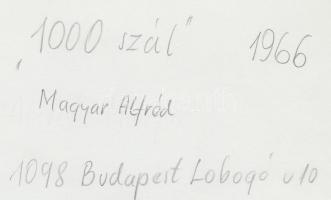 "1000 szál" 1966
Magyar Alfréd
1098 Budapest Lobogó u 10